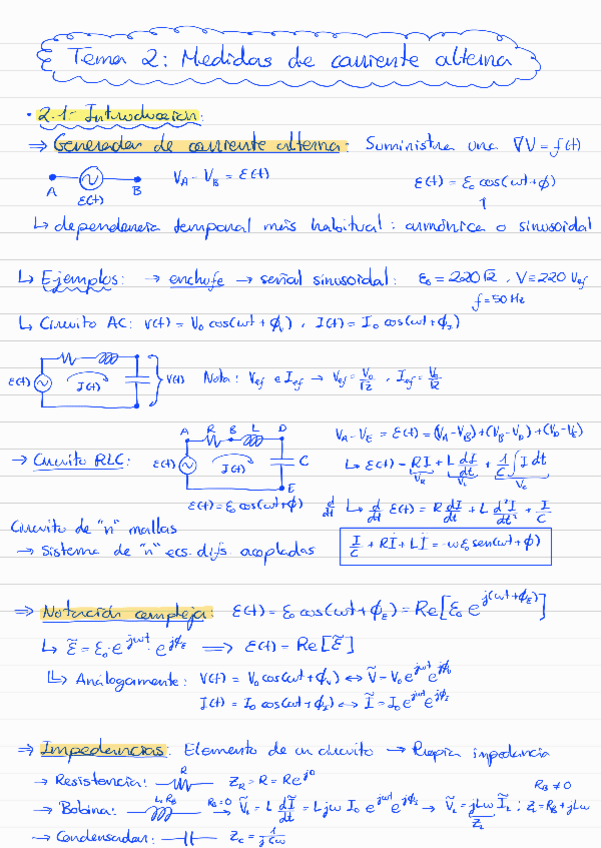 Tema 2: Medidas de corriente alterna
· 2.1- Introducción:
⇒ Generador de corriente alterna: Suministra una ∇V = f(t)
A B ε(t) V_A - V_B = ε(t) ε(t) = ε₀ cos(ωt + ϕ)
↳ dependencia temporal más habitual: armónica o sinusoidal
↳ Ejemplos: → enchufe → señal sinusoidal: ε₀ = 220√2, V = 220 V_ef
f = 50 Hz
↳ Circuito AC: V(t) = V₀ cos(ωt + ϕ₁), I(t) = I₀ cos(ωt + ϕ₂)
ε(t) I(t) V(t) Nota: V_ef e I_ef → V_ef = V₀/√2, I_ef =
A R B L D V_A - V_E = ε(t) = (V_A - V_B) + (V_B - V_D) + (V_D - V_E)
→ Circuito RLC: ε(t) I(t) C E ↳ ε(t) = RI + L dI/dt + 1/C ∫ I dt
V_R V_L V_C
ε(t) = ε₀ cos(ωt + ϕ) d/dt ↳ d/dt ε(t) = R dI/dt + L d²I/dt² + I/C
Circuito de "n" mallas
→ Sistema de "n" ecs. difs acopladas I/C + Rİ + LÏ = -ωε₀ sen(ωt + ϕ)
⇒ Notación compleja: ε(t) = ε₀ cos(ωt + ϕ_E) = Re[ε₀ e^{j(ωt + ϕ_E)}]
↳ ε̃ = ε₀ · e^{jωt} · e^{jϕ_E} ⟹ ε(t) = Re[ε̃]
↳ Análogamente: V(t) = V₀ cos(ωt + ϕ_V) ↔ Ṽ = V₀ e^{jωt} e^{jϕ_V}
I(t) = I₀ cos(ωt + ϕ_I) ↔ Ĩ = I₀ e^{jωt} e^{jϕ_I}
⇒ Impedancias: Elemento de un circuito → Propia impedancia
→ Resistencia: R Z_R = R = R e^{j0}
R_B ≠ 0
→ Bobina: L, R_B R_B = 0 Ṽ_L = L dĨ/dt = Ljω I₀ e^{jωt} e^{jϕ_I} → Ṽ_L = jLω Ĩ_L ; Z_L = R_B + jLω
Z_L
→ Condensador: Z_C = 1/jCω